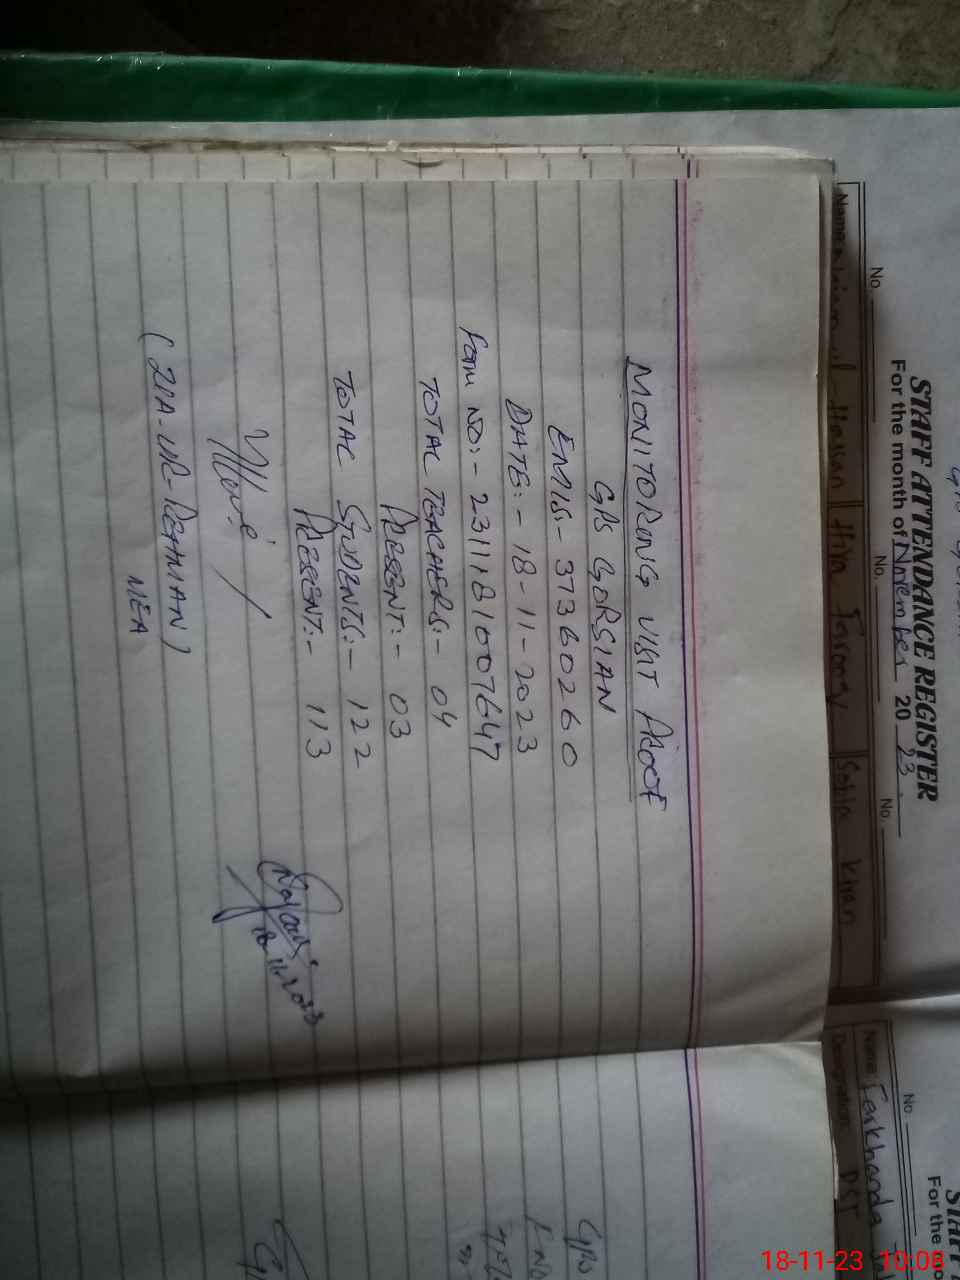 MONITORING VISIT PROOF
GPS GORSIAN
EMIS:- 37360260
DATE:- 18-11-2023
Form NO:- 2311181007647
TOTAL TEACHERS:- 04
PRESENT:- 03
TOTAL STUDENTS:- 122
PRESENT:- 113
(ZIA-UR-REHMAN)
MEA
18-11-2023
STAFF ATTENDANCE REGISTER
For the month of November 2023
No. No. No.
Name Hassan Hifza Sofia Kiran
No.
Name Ferkhanda
Designation DST
STAFF
For the mo
GPS
18-11-23 10:08